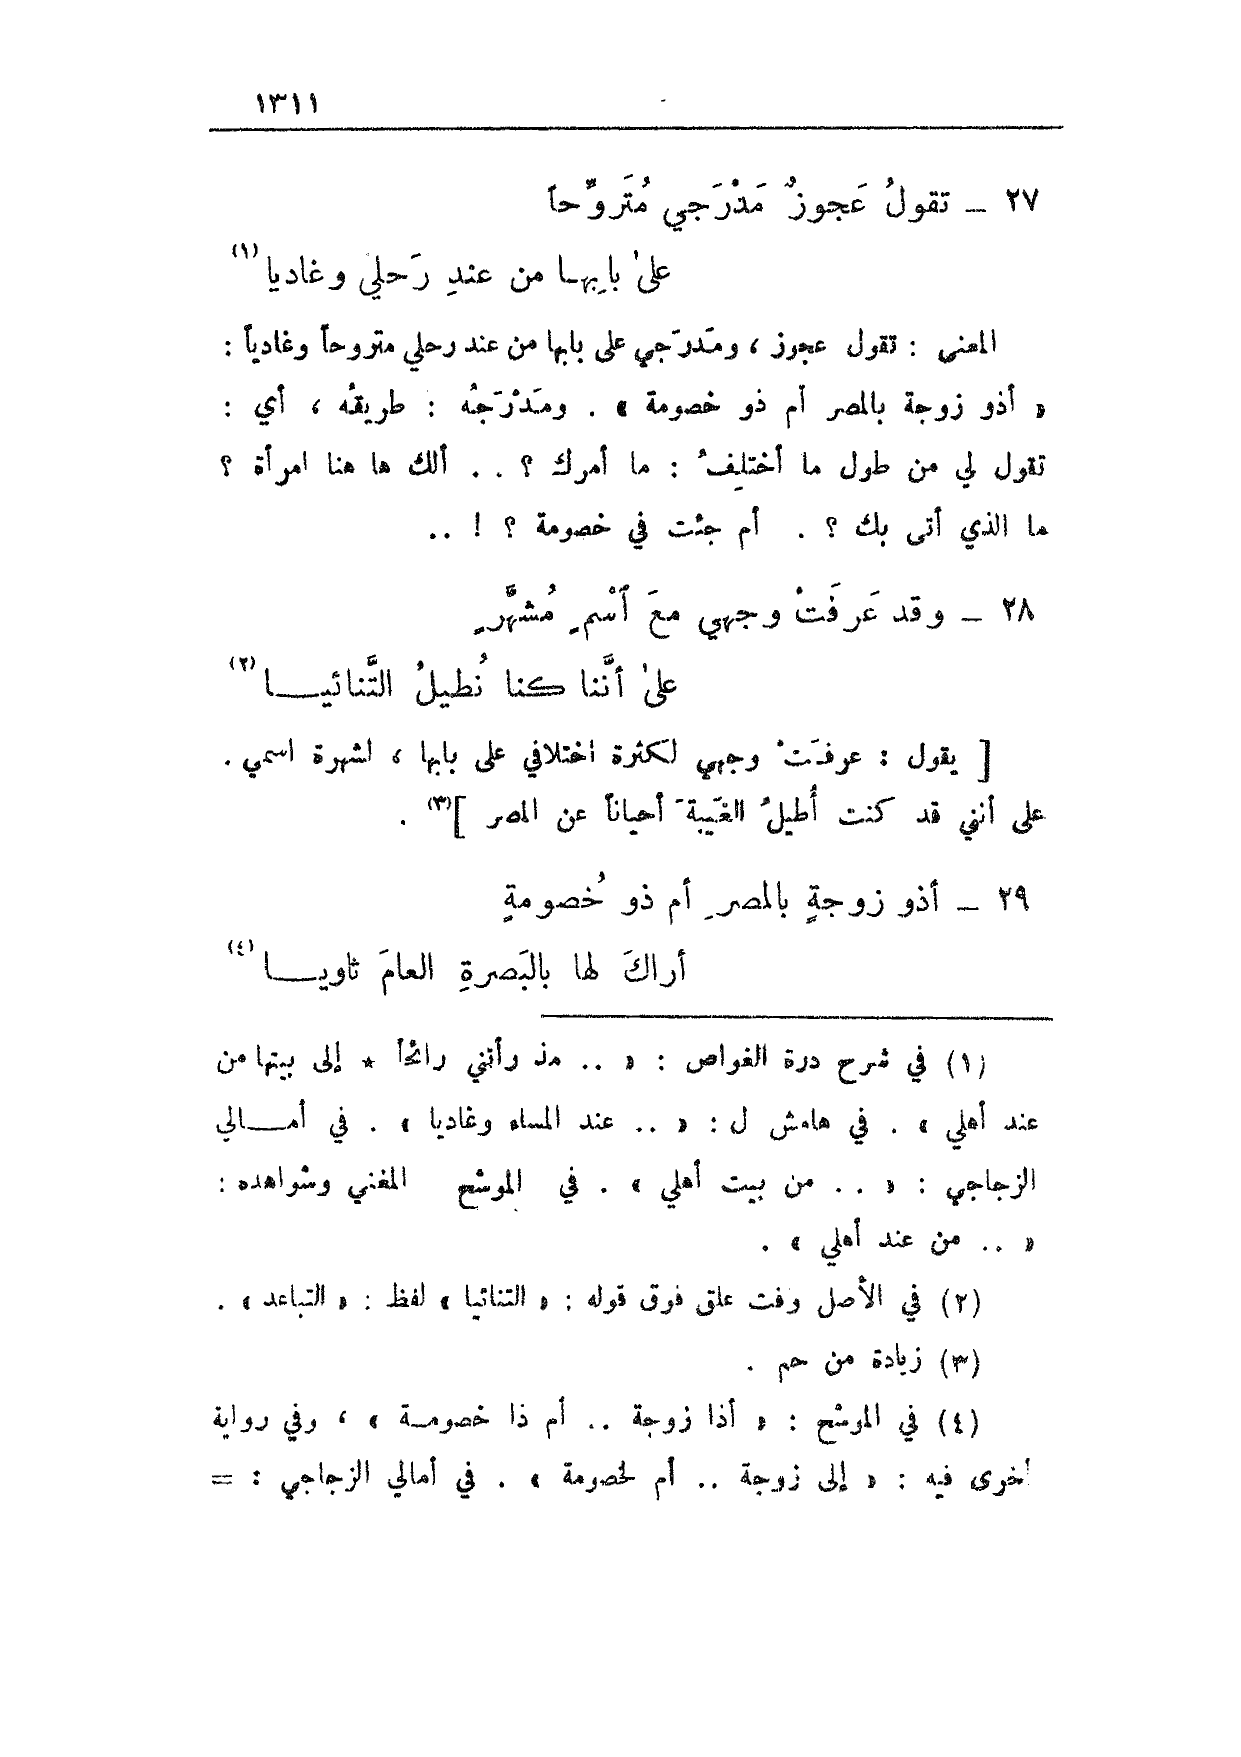 ١٣١١
٢٧ ـ تقولُ عَجوزٌ مَدْرَجي مُتَروِّحاً
علىٰ بابِها من عندِ رَحلي وغاديا (١)
المعنى : تقول عجوز ، ومَدرَجي على بابها من عند رحلي متروحاً وغادياً :
« أذو زوجة بالمصر أم ذو خصومة » . ومَدْرَجُه : طريقُه ، أي :
تقول لي من طول ما أختلِفُ : ما أمرك ؟ . . ألك ها هنا امرأة ؟
ما الذي أتى بك ؟ . أم جئت في خصومة ؟ ! ..
٢٨ ـ وقد عَرفَتْ وجهي معَ ٱسْمٍ مُشهَّرٍ
علىٰ أنَّنا كنا نُطيلُ التَّنائيـــا (٢)
[ يقول : عرفَتْ وجهي لكثرة اختلافي على بابها ، لشهرة اسمي .
على أنني قد كنت أُطيلُ الغَيبةَ أحياناً عن المصر ](٣) .
٢٩ ـ أذو زوجةٍ بالمصرِ أم ذو خُصومةٍ
أراكَ لها بالبَصرةِ العامَ ثاويـــا (٤)
(١) في شرح درة الغواص : « .. مذ رأتني رائحاً * إلى بيتها من
عند أهلي » . في هامش ل : « .. عند المساء وغاديا » . في أمـــالي
الزجاجي : « . . من بيت أهلي » . في الموشح المغني وشواهده :
« .. من عند أهلي » .
(٢) في الأصل وفت علق فوق قوله : « التنائيا » لفظ : « التباعد » .
(٣) زيادة من حم .
(٤) في الموشح : « أذا زوجة .. أم ذا خصومـة » ، وفي رواية
أخرى فيه : « إلى زوجة .. أم لخصومة » . في أمالي الزجاجي : =